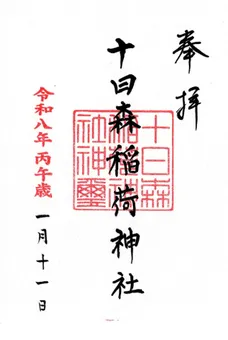 奉拝
十日森稲荷神社
十日森稲荷神社神璽
令和八年丙午歳 一月十一日